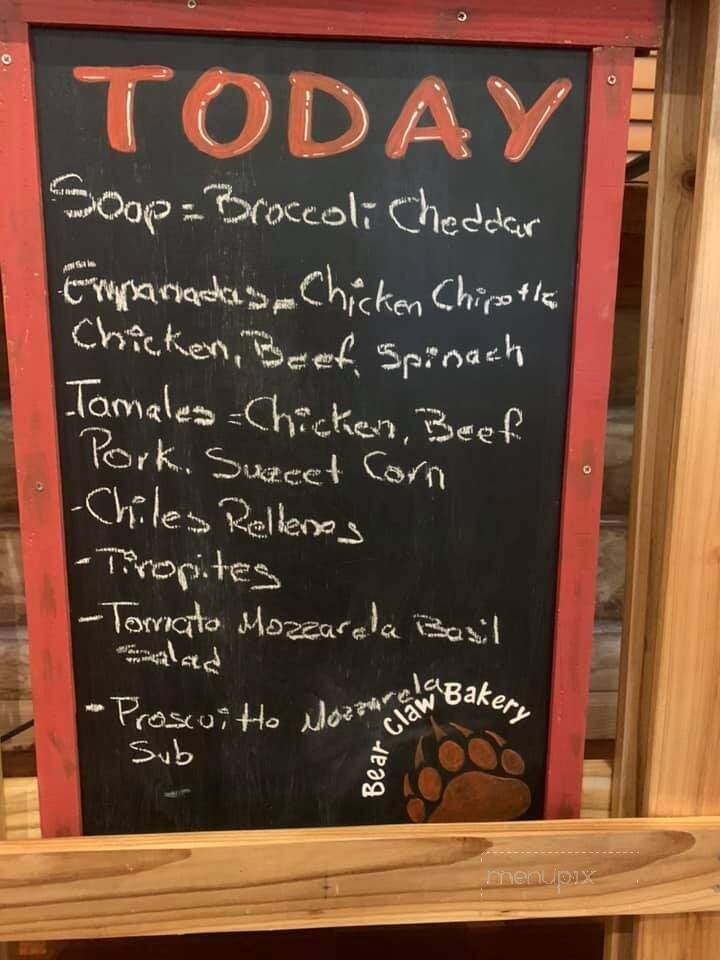 TODAY
Soop = Broccoli Cheddar
Empanadas = Chicken Chipotle
Chicken, Beef, Spinach
-Tamales = Chicken, Beef
Pork. Sweet Corn
-Chiles Rellenos
-Tiropites
-Tomato Mozzarela Basil
Salad
- Proscuitto Mozzarela
Sub
Bear Claw Bakery
menupix